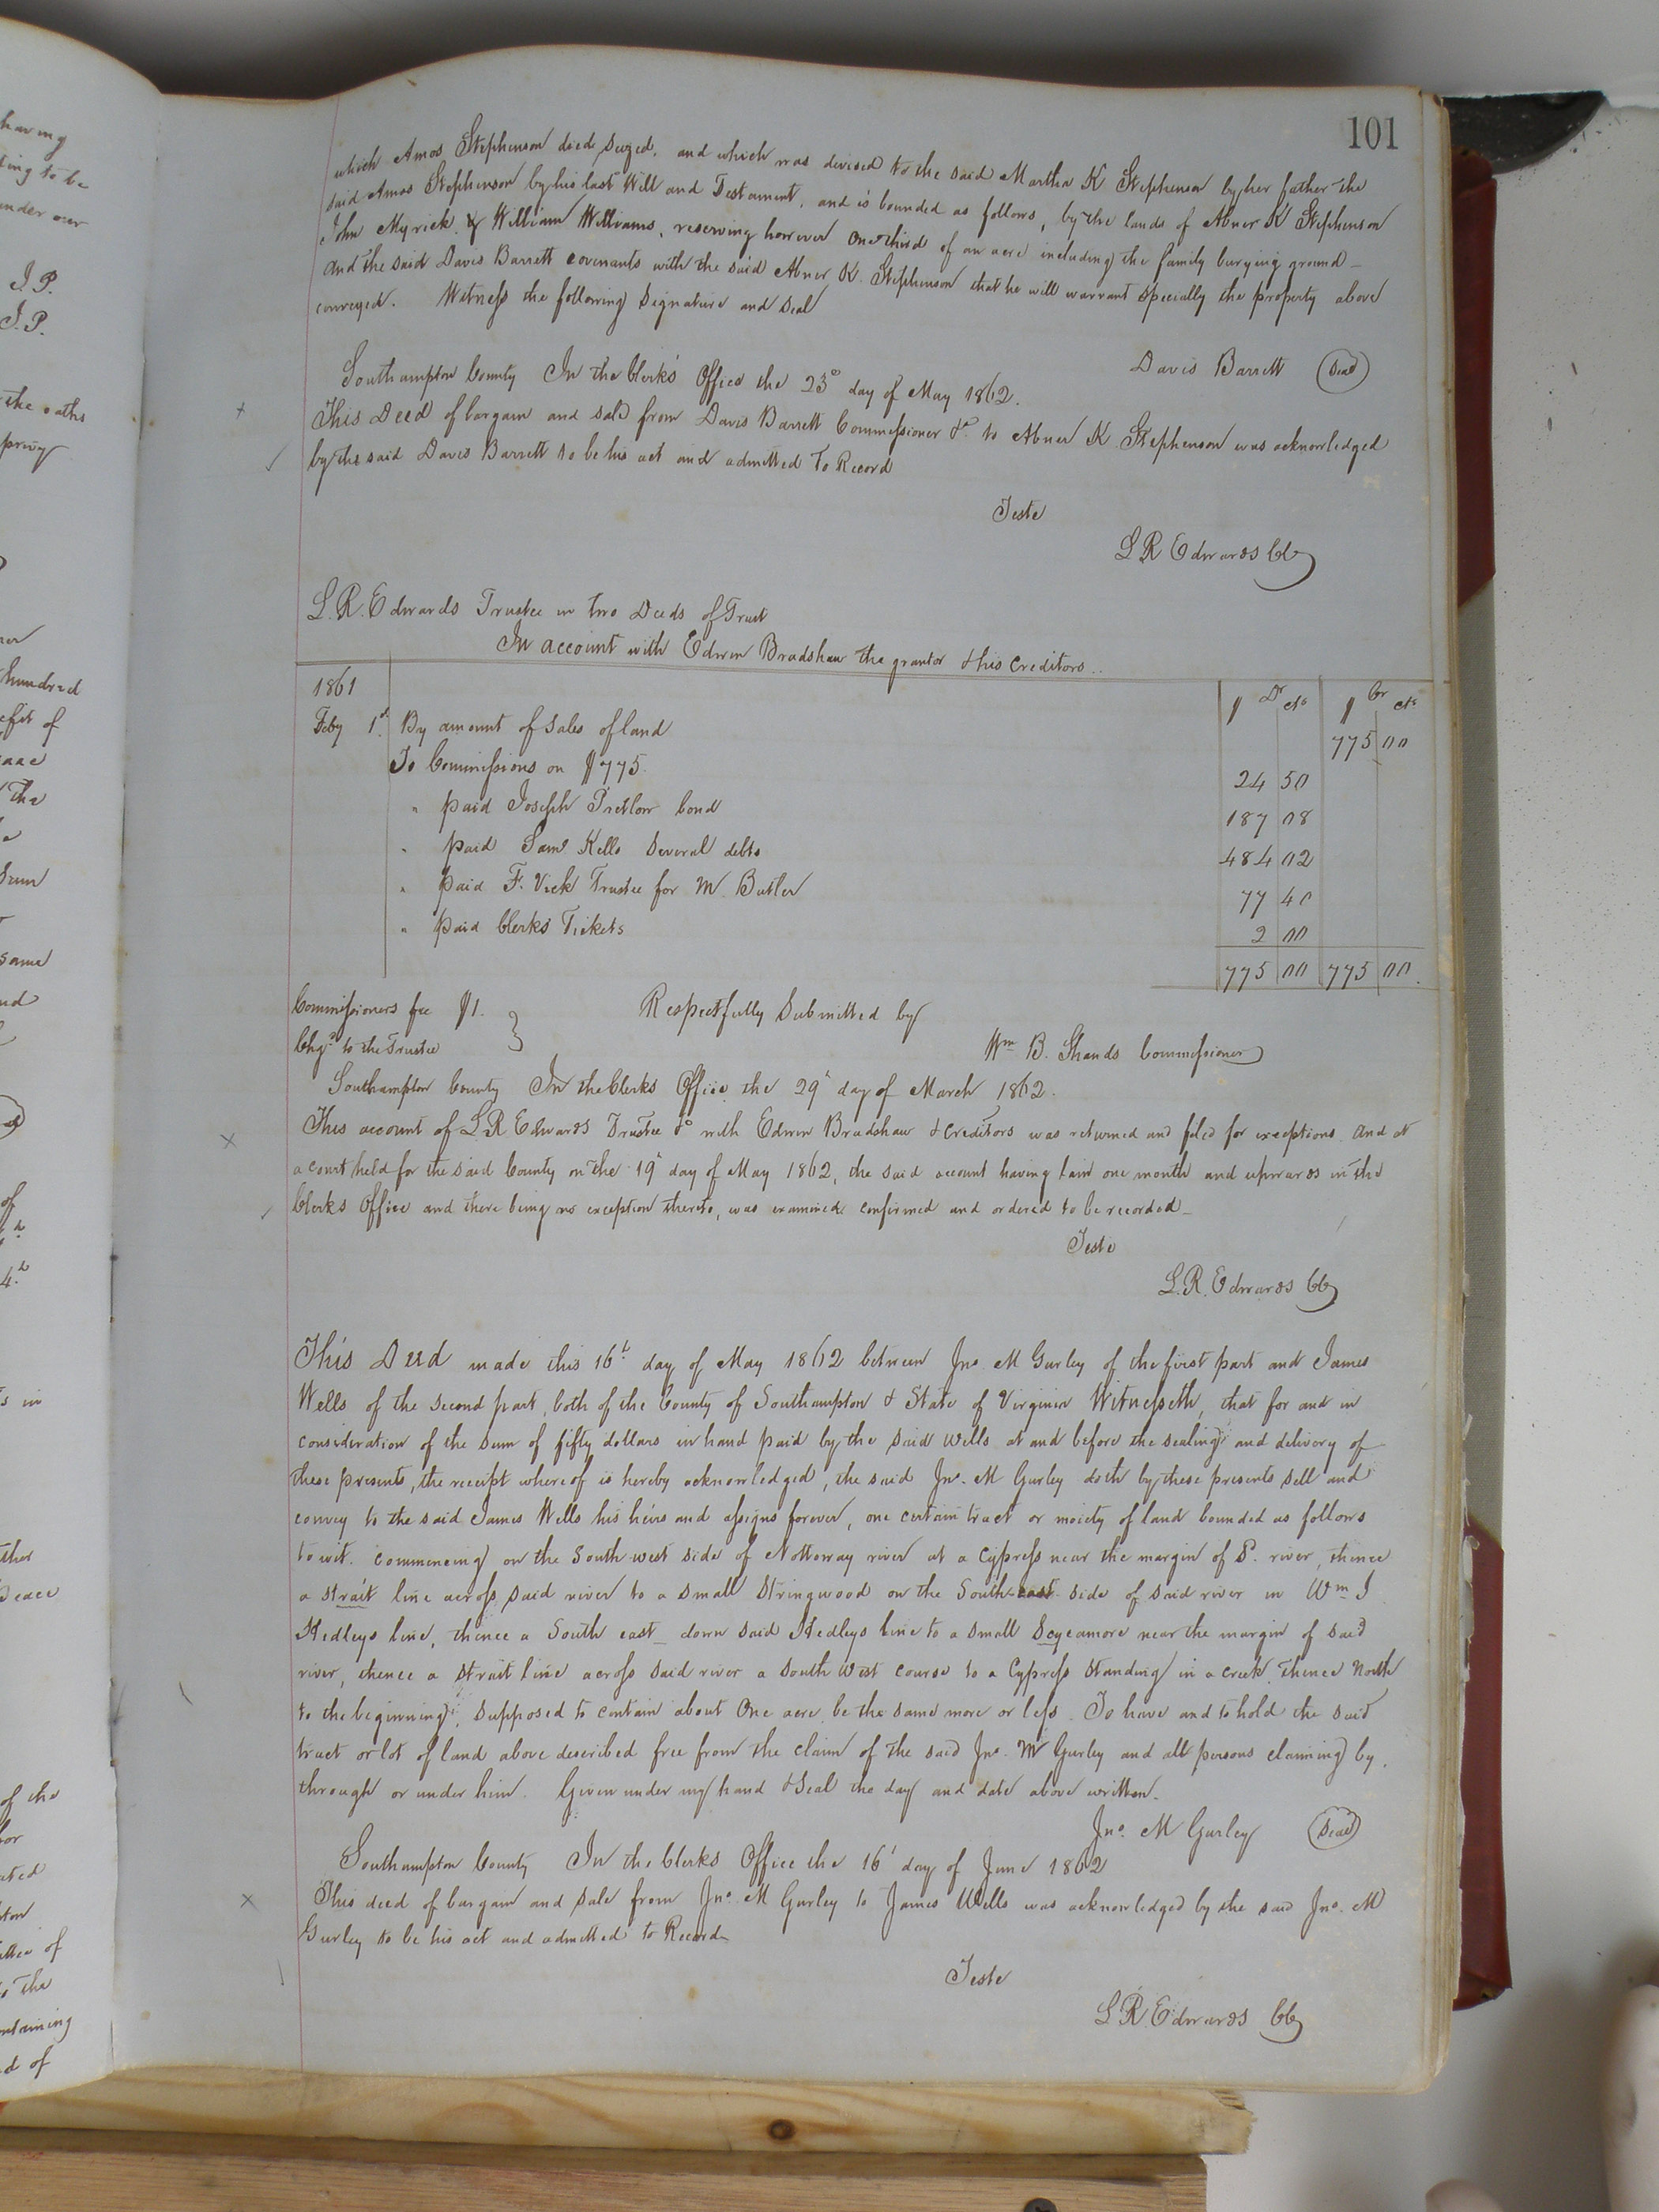 101
which Amos Stephenson died seized, and which was devised to the said Martha K Stephenson by her father the
said Amos Stephenson by his last Will and Testament, and is bounded as follows, by the lands of Abner K Stephenson
John Myrick & William Williams, reserving however one third of an acre including the family burying ground_
And the said Davis Barrett covenants with the said Abner K. Stephenson that he will warrant specially the property above
conveyed. Witness the following signature and seal
Davis Barrett (Seal)
Southampton County In the Clerk's Office the 23d day of May 1862.
This Deed of bargain and sale from Davis Barrett Commissioner &c to Abner K Stephenson was acknowledged
by the said Davis Barrett to be his act and admitted to Record
Teste
L R Edwards Clk
L. R. Edwards Trustee in two Deeds of Trust
In account with Edwin Bradshaw the grantor & his Creditors..
1861 $ Dr cts $ Cr cts
Feby 1st By amount of sales of land 775 00
To Commissions on $775 24 50
" paid Joseph Pretlow bond 187 08
" paid Saml Kello several debts 484 02
" paid F. Vick Trustee for M. Butler 77 40
" paid Clerks Tickets 2 00
775 00 775 00
Commissioners fee $1. Respectfully Submitted by
Chgd to the Trustee
Wm B. Shands Commissioner
Southampton County In the Clerks Office the 29th day of March 1862.
This account of L R Edwards Trustee &c with Edwin Bradshaw & Creditors was returned and filed for exceptions. And at
a court held for the said County on the 19th day of May 1862, the said account having lain one month and upwards in the
Clerks Office and there being no exception thereto, was examined confirmed and ordered to be recorded_
Teste
L. R. Edwards Clk
This Deed made this 16th day of May 1862 between Jno. M Gurley of the first part and James
Wells of the second part, both of the County of Southampton & State of Virginia Witnesseth, that for and in
consideration of the sum of fifty dollars in hand paid by the said Wells at and before the sealing and delivery of
these presents, the receipt whereof is hereby acknowledged, the said Jno. M Gurley doth by these presents sell and
convey to the said James Wells his heirs and assigns forever, one certain tract or moiety of land bounded as follows
to wit. Commencing on the South west side of Nottoway river at a Cypress near the margin of S. river, thence
a strait line across said river to a small Stringwood on the South-east side of said river in Wm J
Kedleys line, thence a South east_ down said Kedleys line to a small Scycamore near the margin of said
river, thence a strait line across said river a south west course to a Cypress standing in a creek. Thence North
to the beginning, supposed to contain about One acre be the same more or less. To have and to hold the said
tract or lot of land above described free from the claim of the said Jno. M Gurley and all persons claiming by,
through or under him. Given under my hand & seal the day and date above written_
Jno. M Gurley (Seal)
Southampton County In the Clerks Office the 16th day of June 1862
This deed of bargain and sale from Jno. M Gurley to James Wells was acknowledged by the said Jno. M
Gurley to be his act and admitted to Record_
Teste
L R Edwards Clk